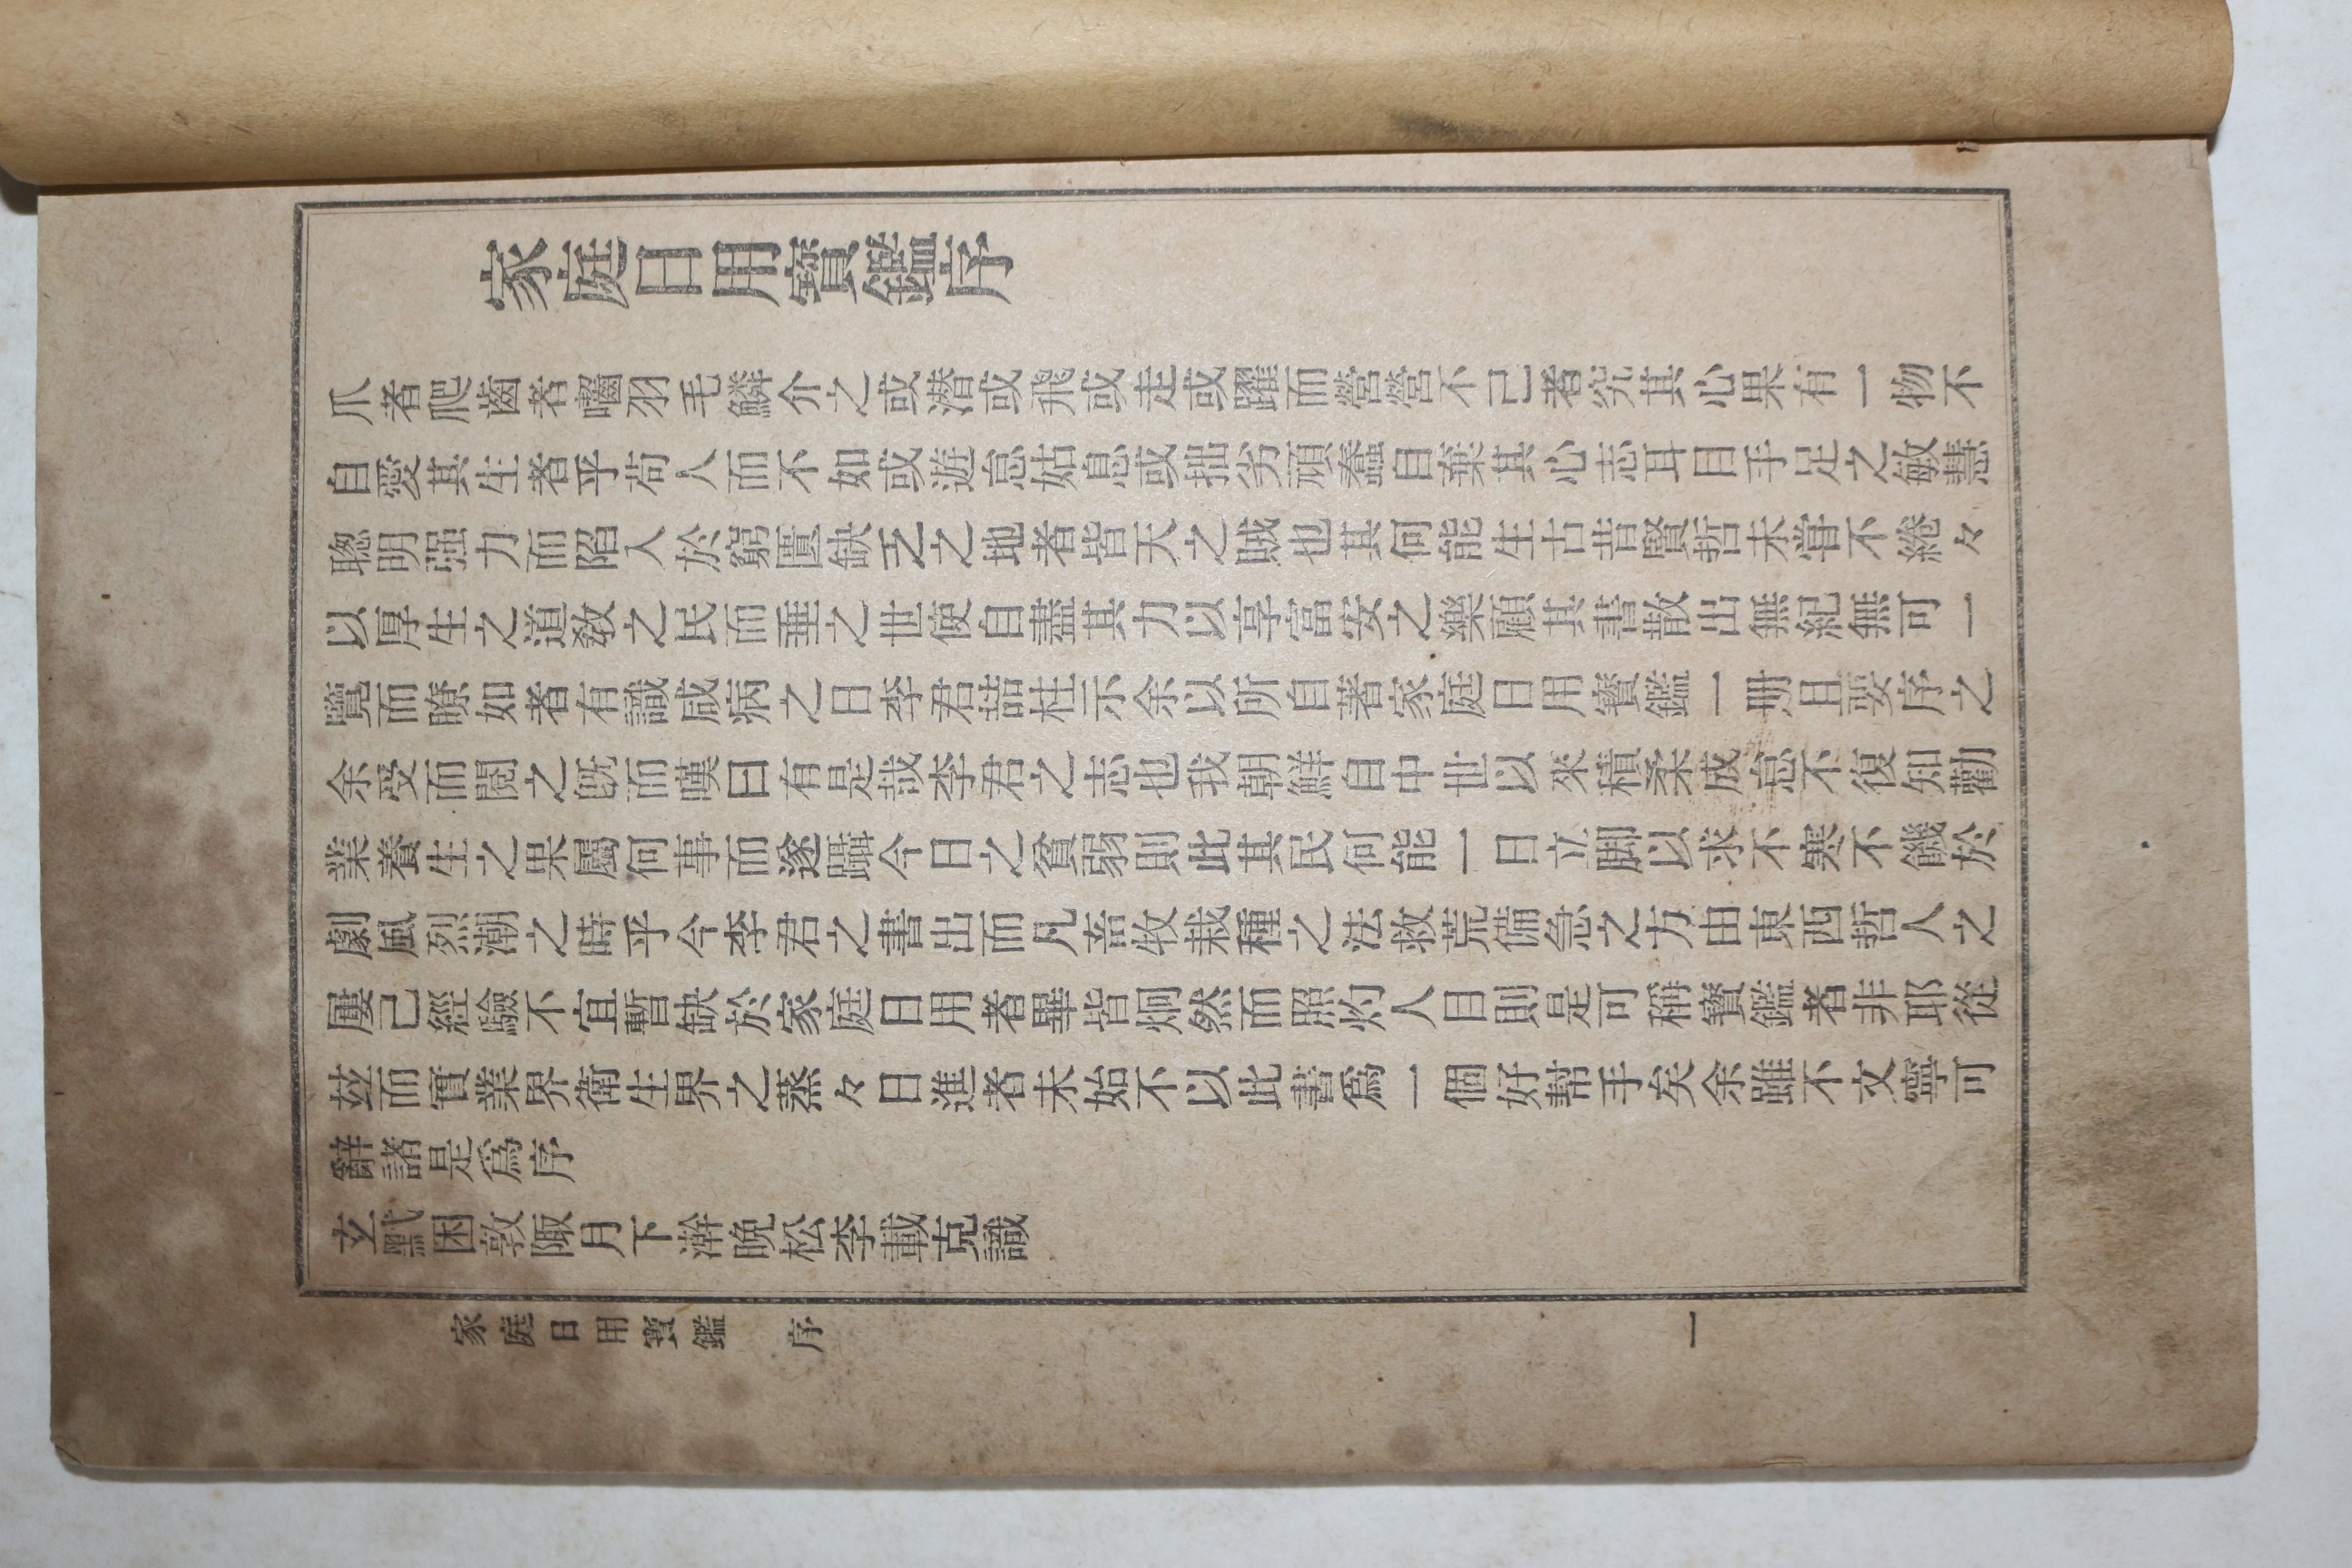 家庭日用寶鑑序
爪者爬齒者嚙羽毛鱗介之或潜或飛或走或躍而營營不已者究其心果有一物不
自愛其生者乎苟人而不如或遊怠姑息或拙劣頑蠢自棄其心志耳目手足之敏慧
聰明强力而陷入於窮匱缺乏之地者皆天之賊也其何能生古昔賢哲未甞不綣々
以厚生之道敎之民而垂之世使自盡其力以享富安之樂顧其書散出無紀無可一
覽而瞭如者有識咸病之日李君喆柱示余以所自著家庭日用寶鑑一册且要序之
余受而閱之旣而嘆曰有是哉李君之志也我朝鮮自中世以來積柔成怠不復知勸
業養生之果屬何事而遂躡今日之貧弱則此其民何能一日立脚以求不寒不饑於
劇風烈潮之時乎今李君之書出而凡畜牧栽種之法救荒備急之方由東西哲人之
屢已經驗不宜暫缺於家庭日用者畢皆炯然而照灼人目則是可稱寶鑑者非耶從
玆而實業界衛生界之蒸々日進者未始不以此書爲一個好幇手矣余雖不文寧可
辭諸是爲序
玄黓困敦陬月下澣晩松李載克識
家庭日用寶鑑 序
一